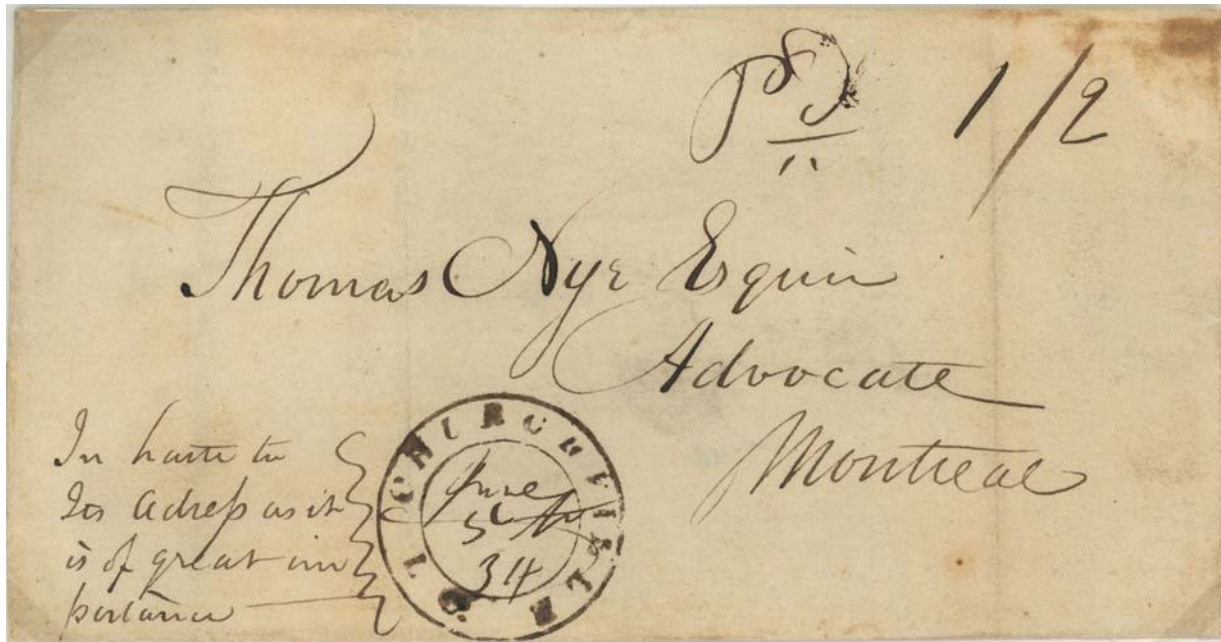 Pd 1/2
Thomas Nye Esquire
Advocate
Montreal
In haste to
Its adreſs as it
is of great im
portance
CHURCHVILLE L. C.
June
5th
34